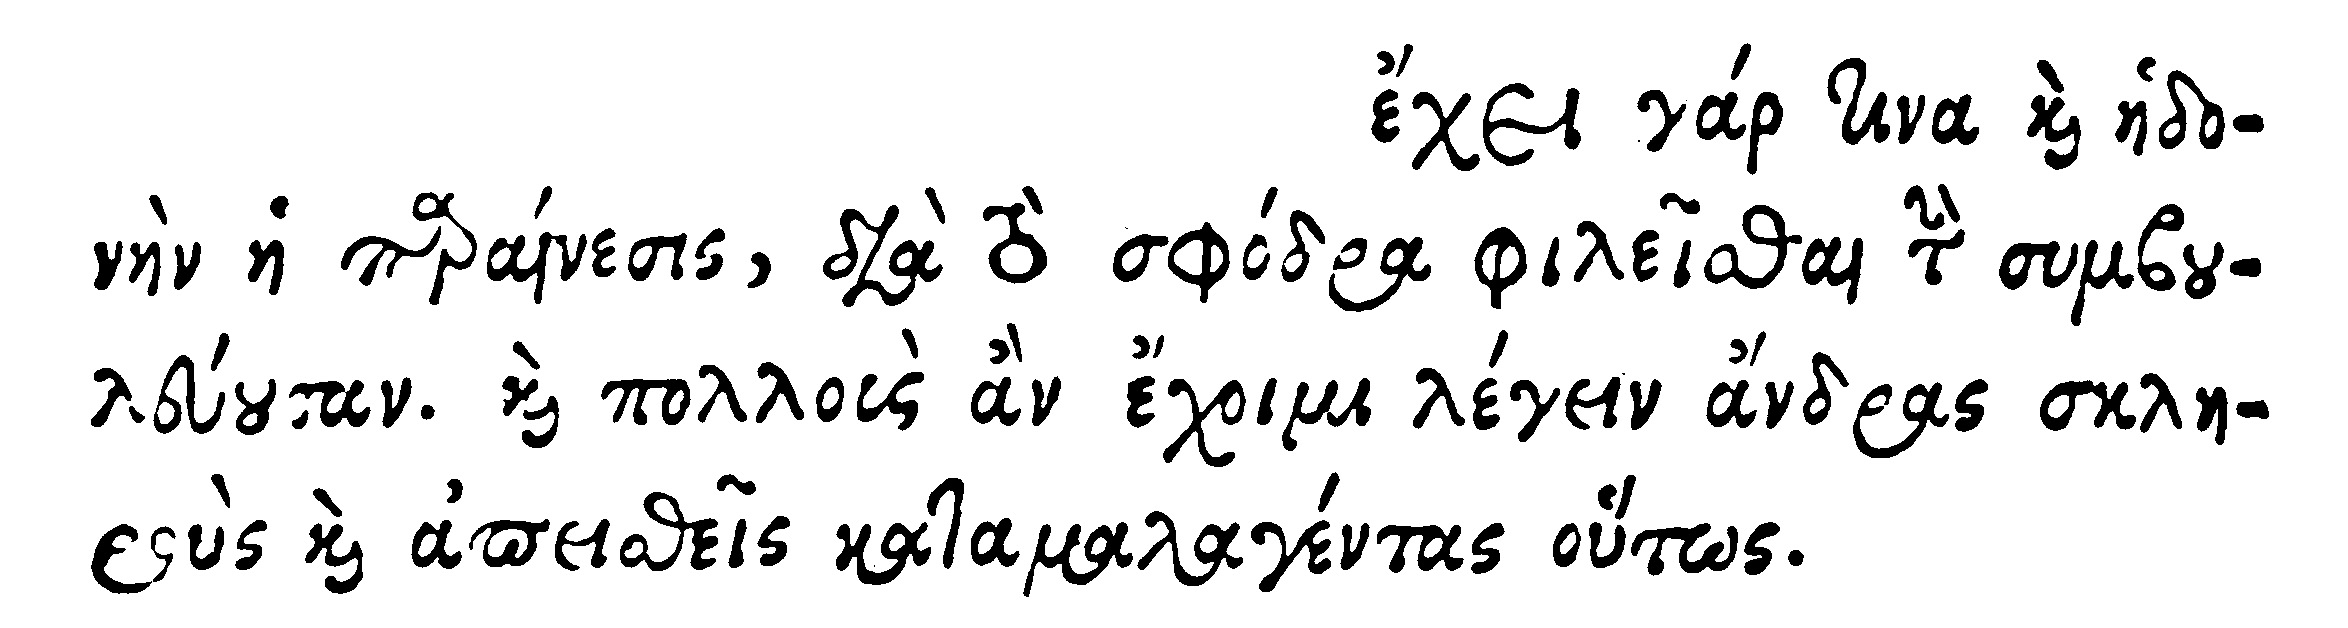 ἔχει γάρ τινα καὶ ἡδο-
νὴν ἡ παραίνεσις, διὰ τὸ σφόδρα φιλεῖσθαι τὴν συμβου-
λεύουσαν. καὶ πολλοὺς ἂν ἔχοιμι λέγειν ἄνδρας σκλη-
ροὺς καὶ ἀπειθεῖς καταμαλαγέντας οὕτως.